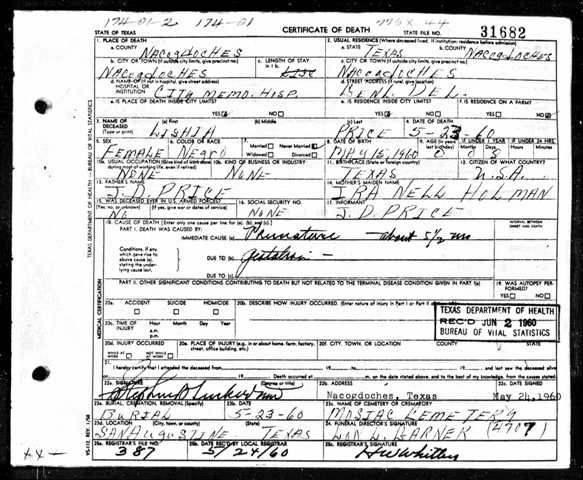 174-01-2 174-01 776X 44
STATE OF TEXAS CERTIFICATE OF DEATH STATE FILE NO. 31682
1. PLACE OF DEATH 2. USUAL RESIDENCE (Where deceased lived, if institution: residence before admission)
a. COUNTY NACOGDOCHES a. STATE TEXAS b. COUNTY NACOGDOCHES
b. CITY OR TOWN (If outside city limits, give precinct no.) c. LENGTH OF STAY c. CITY OR TOWN (If outside city limits, give precinct no.)
NACOGDOCHES LIFE NACOGDOCHES
d. NAME OF (If not in hospital, give street address) HOSPITAL OR INSTITUTION CITY MEMO. HOSP. d. STREET ADDRESS GENL DEL.
e. IS PLACE OF DEATH INSIDE CITY LIMITS? YES NO e. IS RESIDENCE INSIDE CITY LIMITS? YES NO f. IS RESIDENCE ON A FARM? YES NO
3. NAME OF DECEASED (Type or print) (a) First (b) Middle (c) Last 4. DATE OF DEATH
LISHIA PRICE 5-23-60
5. SEX 6. COLOR OR RACE 7. Married Never Married Widowed Divorced 8. DATE OF BIRTH 9. AGE (In years last birthday) IF UNDER 1 YEAR IF UNDER 24 HRS.
FEMALE NEGRO 15, 1960 0 0 8
10a. USUAL OCCUPATION 10b. KIND OF BUSINESS OR INDUSTRY 11. BIRTHPLACE (State or foreign country) 12. CITIZEN OF WHAT COUNTRY?
NONE NONE TEXAS U.S.A.
13. FATHER'S NAME 14. MOTHER'S MAIDEN NAME
J. D. PRICE IRA NELL HOLMAN
15. WAS DECEASED EVER IN U.S. ARMED FORCES? 16. SOCIAL SECURITY NO. 17. INFORMANT
(Yes, no, or unknown) (If yes, give war or dates of service)
NO NONE J. D. PRICE
18. CAUSE OF DEATH (Enter only one cause per line for (a), (b), and (c).) INTERVAL BETWEEN ONSET AND DEATH
PART I. DEATH WAS CAUSED BY:
IMMEDIATE CAUSE (a) Premature - about 5 1/2 mo
Conditions, if any, which gave rise to above cause (a), stating the underlying cause last. DUE TO (b) gestation -
DUE TO (c)
PART II. OTHER SIGNIFICANT CONDITIONS CONTRIBUTING TO DEATH BUT NOT RELATED TO THE TERMINAL DISEASE CONDITION GIVEN IN PART I(a) 19. WAS AUTOPSY PERFORMED?
YES NO
20a. ACCIDENT SUICIDE HOMICIDE 20b. DESCRIBE HOW INJURY OCCURRED. (Enter nature of injury in Part I or Part II
20c. TIME OF INJURY Hour Month Day Year a.m. p.m.
TEXAS DEPARTMENT OF HEALTH
REC'D JUN 2 1960
BUREAU OF VITAL STATISTICS
20d. INJURY OCCURRED WHILE AT WORK NOT WHILE AT WORK 20e. PLACE OF INJURY (e.g. in or about home, farm, factory, street, office building, etc.) 20f. CITY, TOWN, OR LOCATION COUNTY STATE
22a. SIGNATURE (Degree or title) 22b. ADDRESS 22c. DATE SIGNED
Nacogdoches, Texas May 24, 1960
23a. BURIAL, CREMATION, REMOVAL (Specify) 23b. DATE 23c. NAME OF CEMETERY OR CREMATORY
BURIAL 5-23-60 MOSIAC CEMETERY
23d. LOCATION (City, town, or county) (State) 24. FUNERAL DIRECTOR'S SIGNATURE
SAN AUGUSTINE TEXAS GARNER (4707)
25a. REGISTRAR'S FILE NO. 25b. DATE REC'D BY LOCAL REGISTRAR 25c. REGISTRAR'S SIGNATURE
387 5/24/60
TEXAS DEPARTMENT OF HEALTH - BUREAU OF VITAL STATISTICS
MEDICAL CERTIFICATION